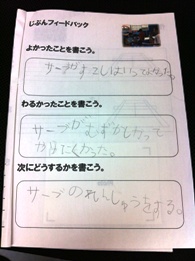 じぶんフィードバック
よかったことを書こう。
サーブが すこしはいってよかった。
わるかったことを書こう。
サーブが むずかしくって
くた。
次にどうするかを書こう。
サーブの れんしゅうをする。